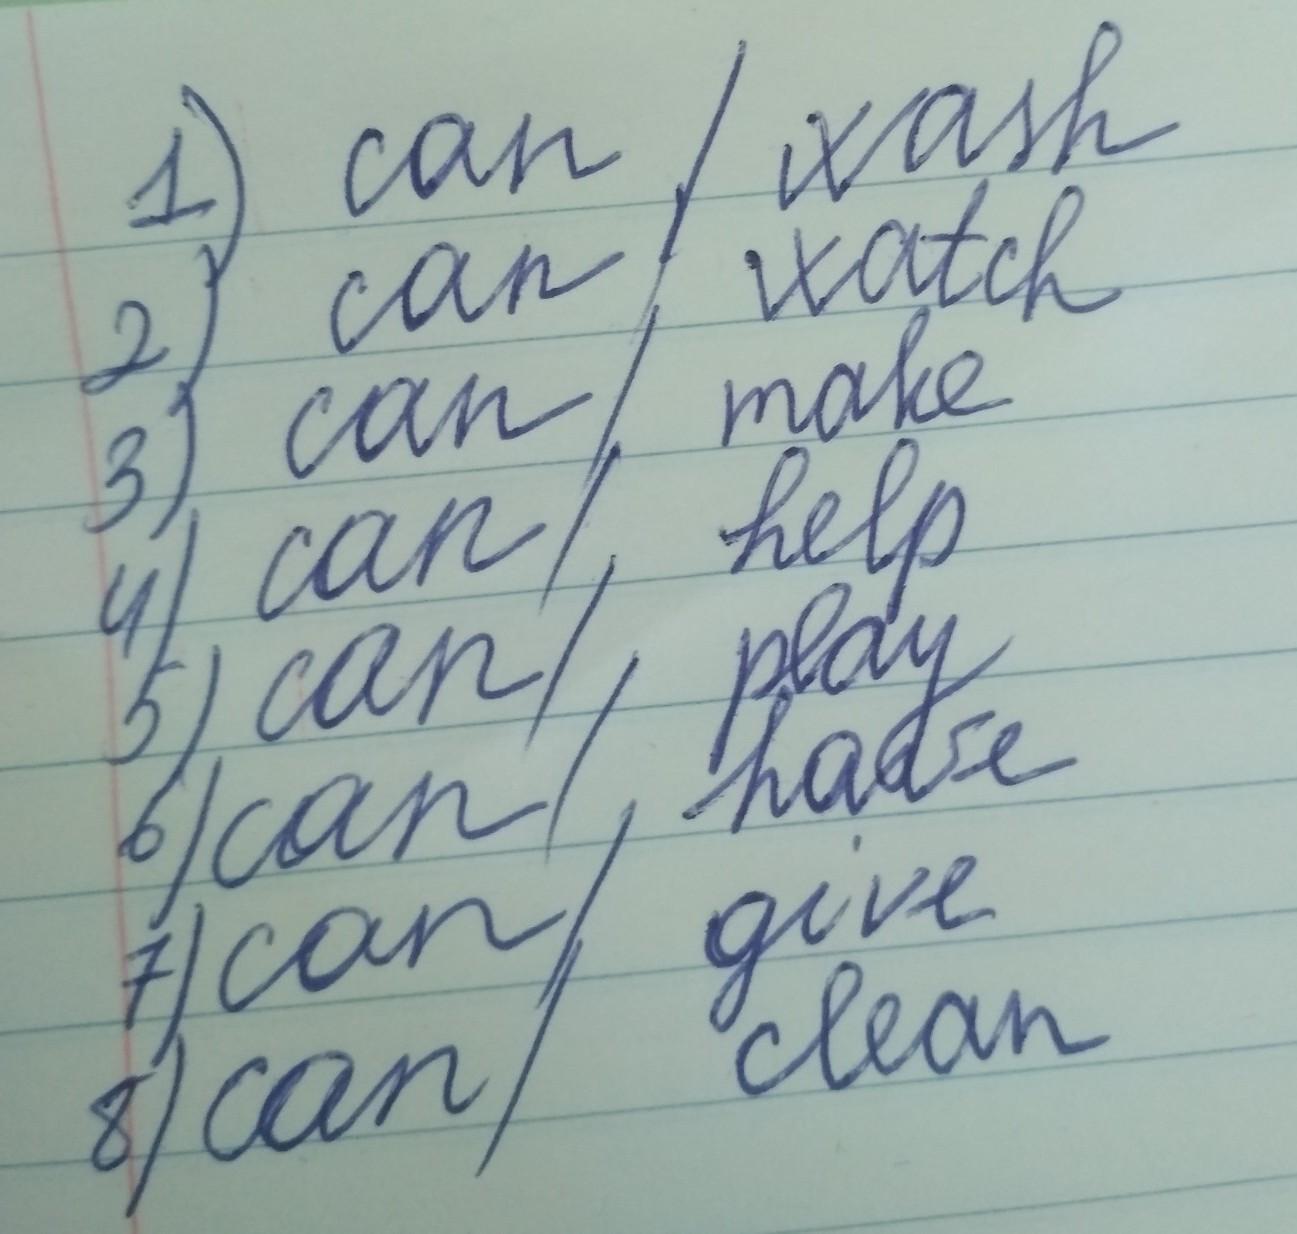 1) can / wash
2) can / watch
3) can / make
4) can / help
5) can / play
6) can /
7) can / give
8) can / clean